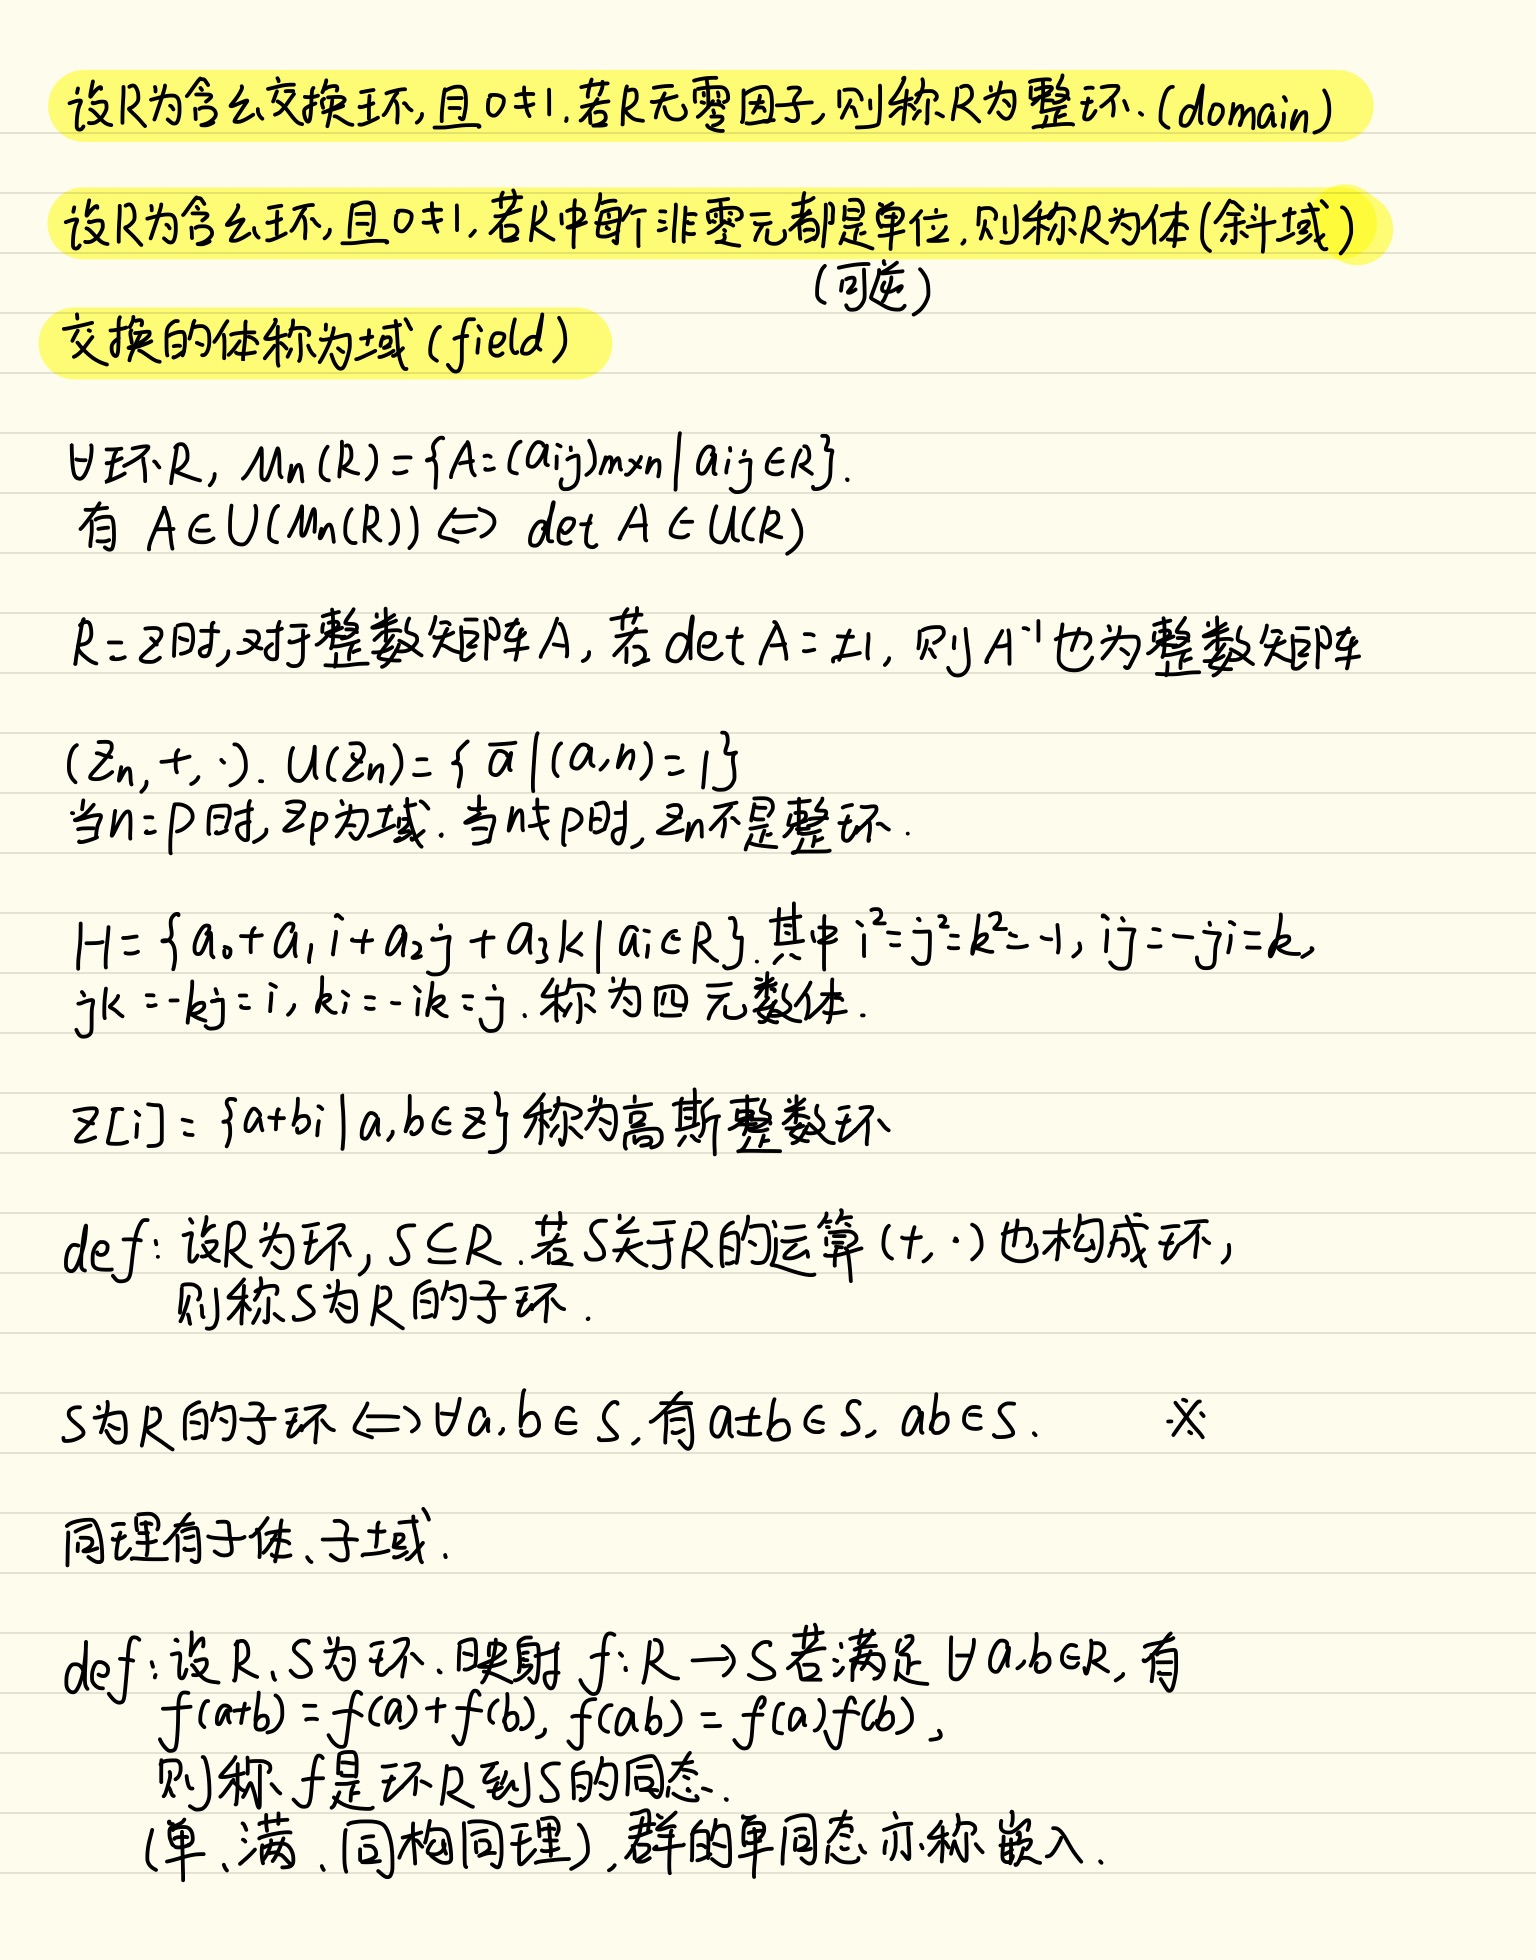 设R为含幺交换环,且0≠1.若R无零因子,则称R为整环.(domain)
设R为含幺环,且0≠1,若R中每个非零元都是单位,则称R为体(斜域)
(可逆)
交换的体称为域(field)
∀环R, Mn(R)={A=(aij)m×n|aij∈R}.
有 A∈U(Mn(R))⇔ det A∈U(R)
R=Z时,对于整数矩阵A,若detA=±1,则A⁻¹也为整数矩阵
(Zn,+,·). U(Zn)={ā|(a,n)=1}
当n=p时,Zp为域.当n≠p时,Zn不是整环.
H={a₀+a₁i+a₂j+a₃k|ai∈R}.其中i²=j²=k²=-1,ij=-ji=k,
jk=-kj=i,ki=-ik=j.称为四元数体.
Z[i]={a+bi|a,b∈Z}称为高斯整数环
def:设R为环,S⊆R.若S关于R的运算(+,·)也构成环,
则称S为R的子环.
S为R的子环⇔∀a,b∈S,有a±b∈S,ab∈S. ※
同理有子体、子域.
def:设R、S为环.映射f:R→S若满足∀a,b∈R,有
f(a+b)=f(a)+f(b),f(ab)=f(a)f(b),
则称f是环R到S的同态.
(单、满、同构同理),群的单同态亦称嵌入.